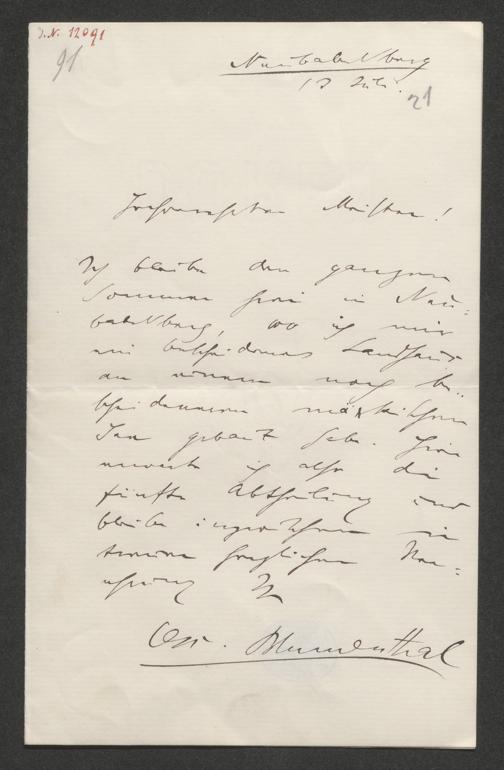 J.N. 12091
91
Neubabelsberg
13 Juli.
21
Hochverehrter Meister!
Ich bleibe den ganzen
Sommer hier in Neu-
babelsberg, wo ich mir
ein bescheidenes Landhaus
an einem noch be-
scheideneren märkischen
See gebaut habe. Hier
erwarte ich also die
fünfte Abtheilung und
bleibe inzwischen in
treuer herzlicher Ver-
ehrung Ihr
Osc. Blumenthal